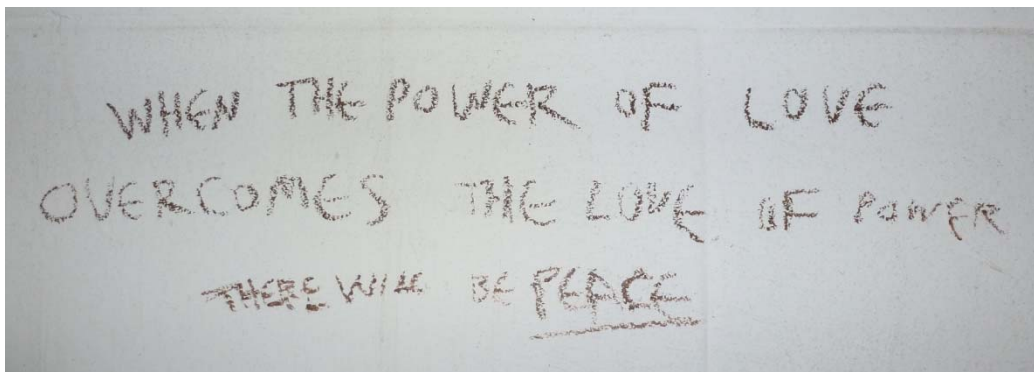 WHEN THE POWER OF LOVE
OVERCOMES THE LOVE OF POWER
THERE WILL BE PEACE